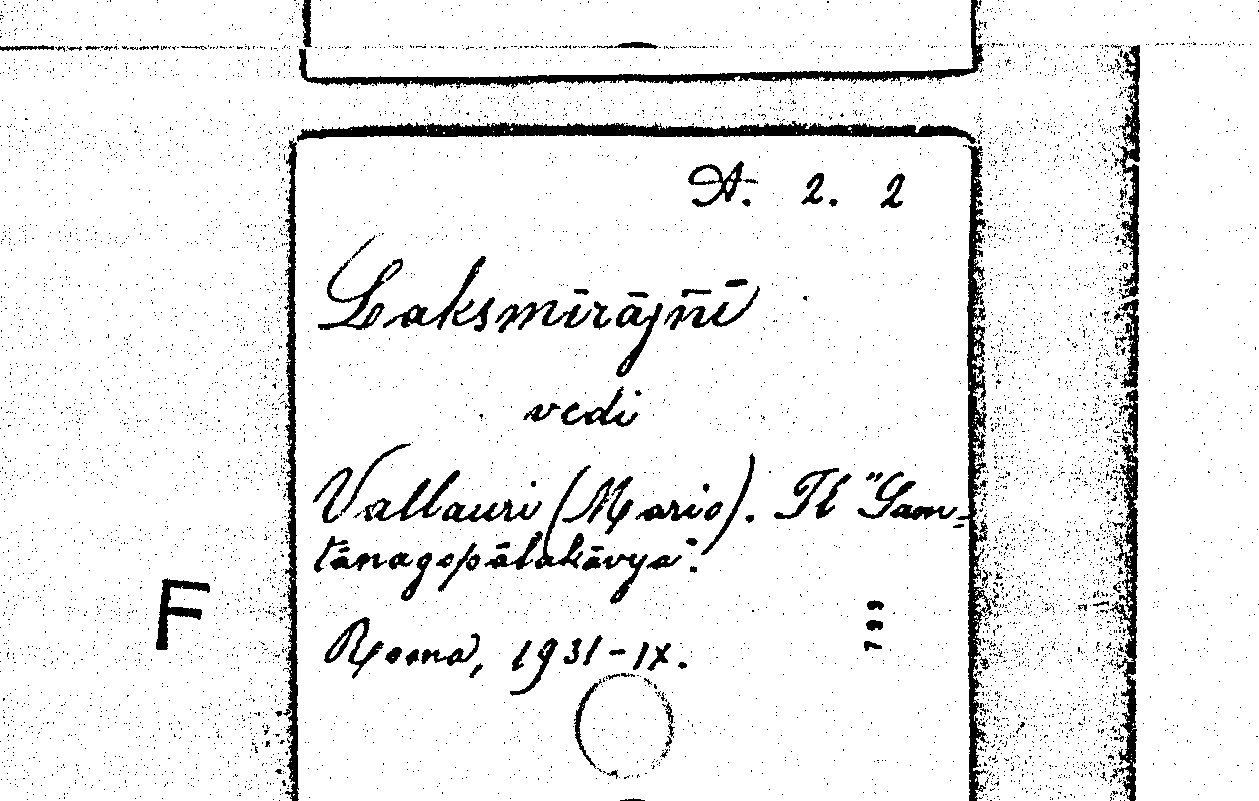 A. 2. 2
Laksmīrājñī
vedi
Vallauri (Mario). Il "Sam-
tānagopālakāvya".
F
799
Roma, 1931-IX.